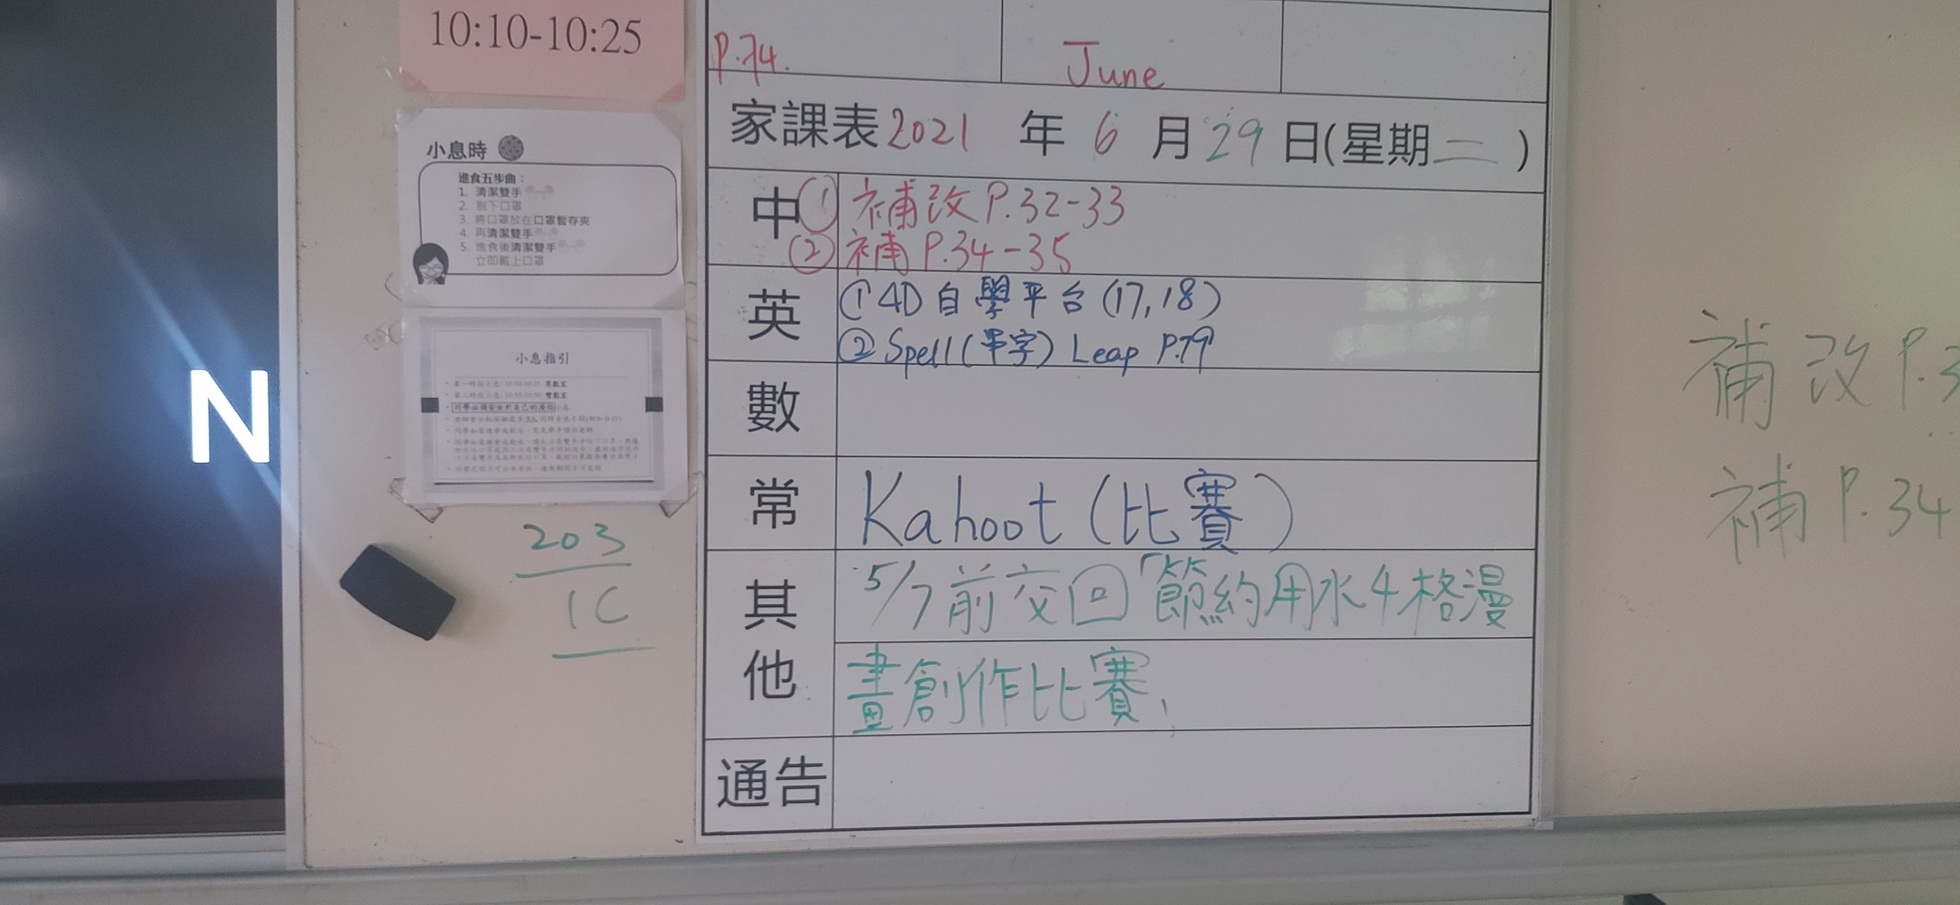 10:10-10:25
小息時
進食五步曲：
1. 清潔雙手
2. 脫下口罩
3. 將口罩放在口罩暫存夾
4. 再清潔雙手
5. 進食後清潔雙手
立即戴上口罩
小息指引
N
203
1C
P.74.
June
家課表2021 年 6 月 29 日(星期二)
中 ① 補改 P.32-33
② 補 P.34-35
英 ① 4D 自學平台 (17,18)
② Spell (單字) Leap P.79
數
常 Kahoot (比賽)
其他 5/7前交回「節約用水4格漫
畫創作比賽
通告
補改 P.3
補 P.34